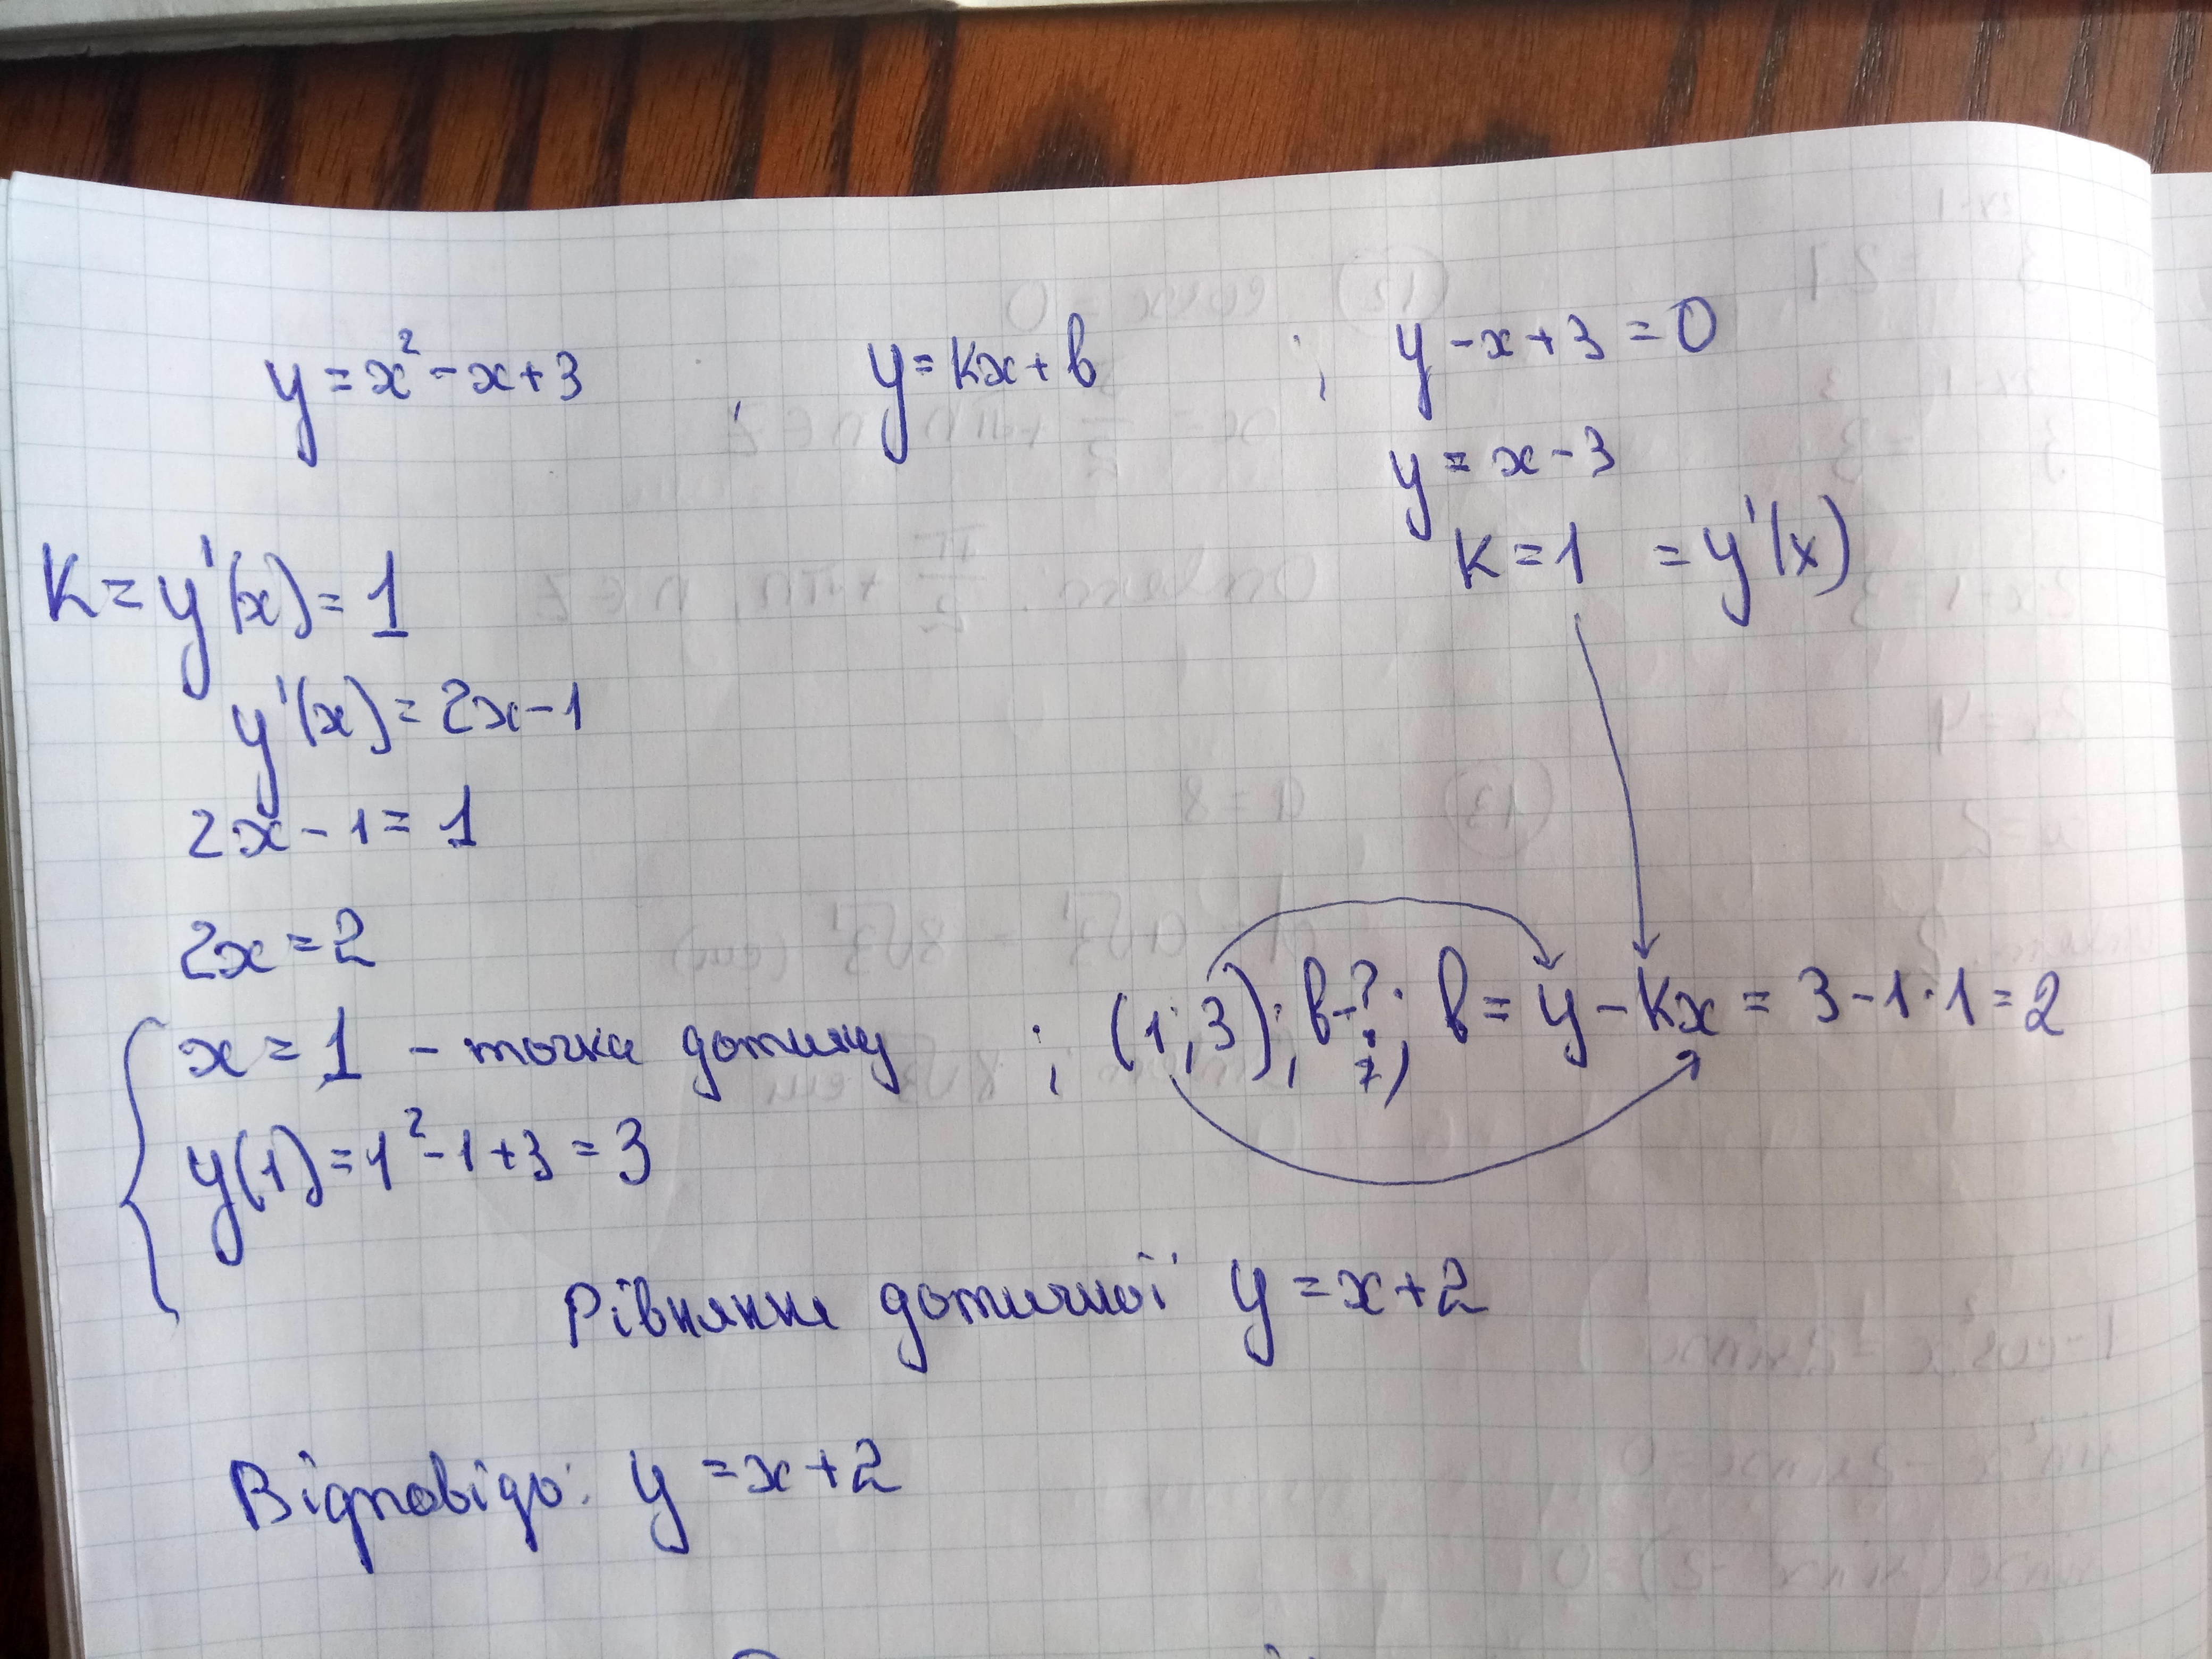 y = x² - x + 3 ; y = kx + b ; y - x + 3 = 0
y = x - 3
k = 1 = y'(x)
K = y'(x) = 1
y'(x) = 2x - 1
2x - 1 = 1
2x = 2
x = 1 - точка дотику ; (1; 3); b-?; b = y - kx = 3 - 1·1 = 2
y(1) = 1² - 1 + 3 = 3
Рівняння дотичної y = x + 2
Відповідь: y = x + 2